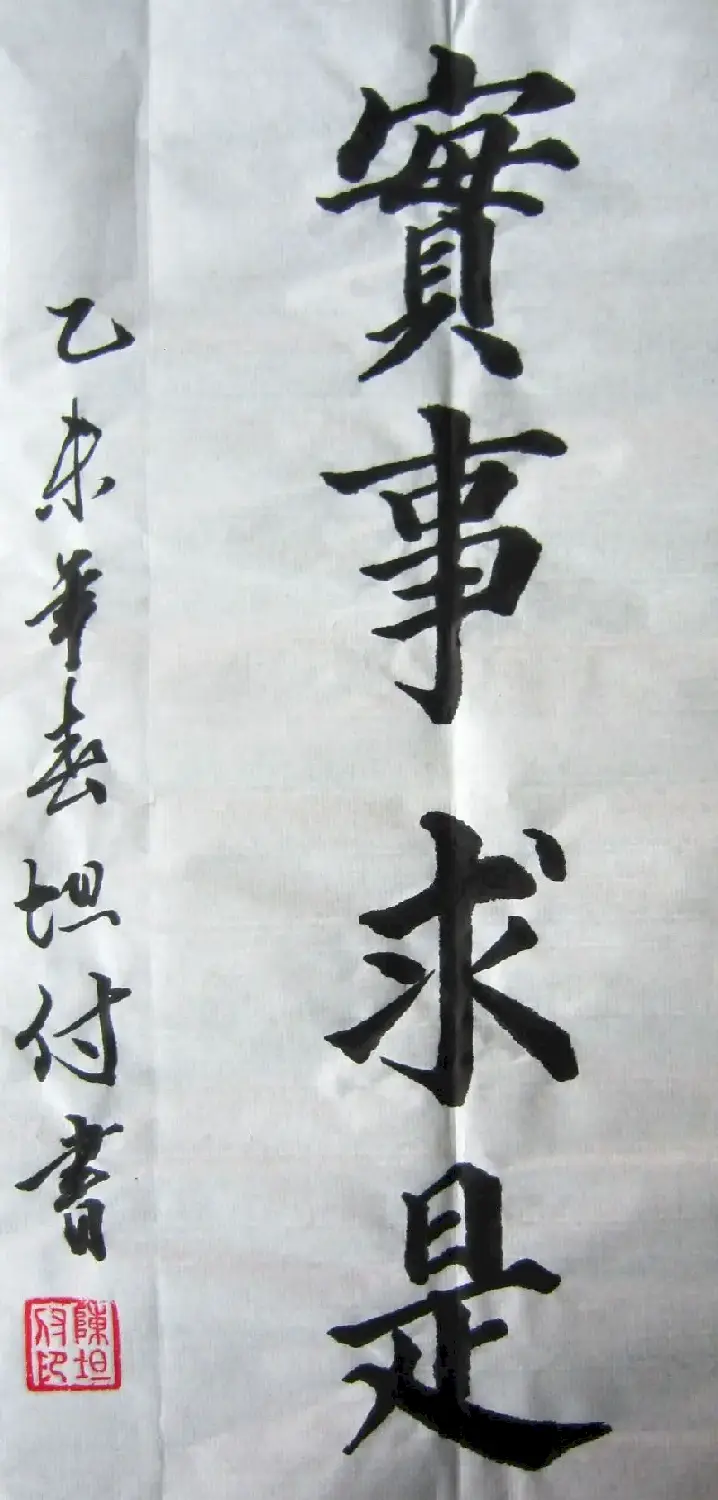 實事求是
乙未年春坦付書
陳坦
付印